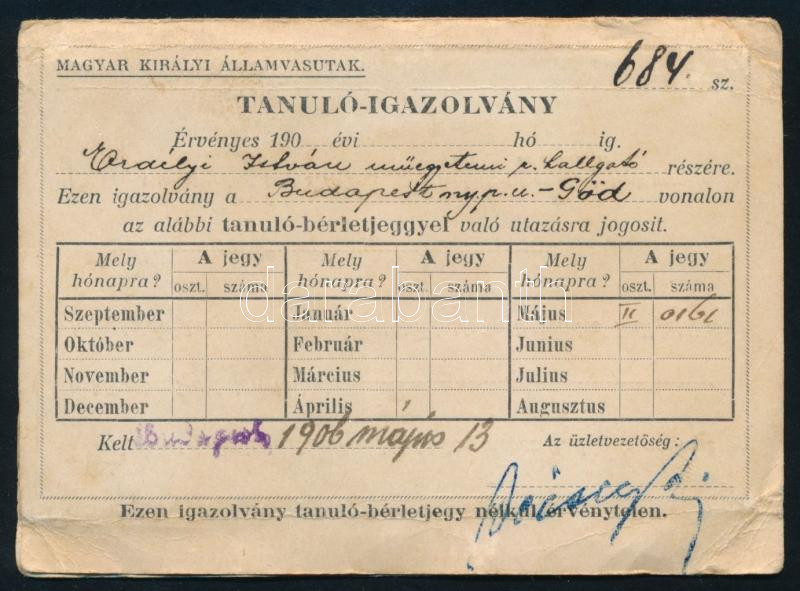 MAGYAR KIRÁLYI ÁLLAMVASUTAK.
684. sz.
TANULÓ-IGAZOLVÁNY
Érvényes 190 évi hó ig.
Erdélyi István műegyetemi r. hallgató részére.
Ezen igazolvány a Budapest ny. p. u. - Göd vonalon
az alábbi tanuló-bérletjeggyel való utazásra jogosit.
Mely hónapra? A jegy oszt. száma Mely hónapra? A jegy oszt. száma Mely hónapra? A jegy oszt. száma
Szeptember Január Május II 0161
Október Február Junius
November Március Julius
December Április Augusztus
Kelt Budapest, 1906 május 13 Az üzletvezetőség:
Ezen igazolvány tanuló-bérletjegy nélkül érvénytelen.
darabanth